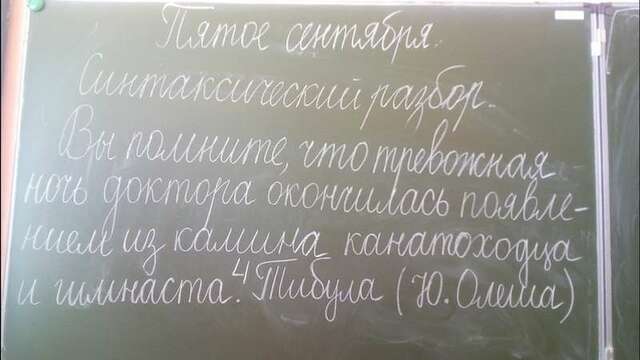 Пятое сентября.
Синтаксический разбор.
Вы помните, что тревожная
ночь доктора окончилась появле-
нием из камина канатоходца
и гимнаста.⁴ Тибула (Ю. Олеша)